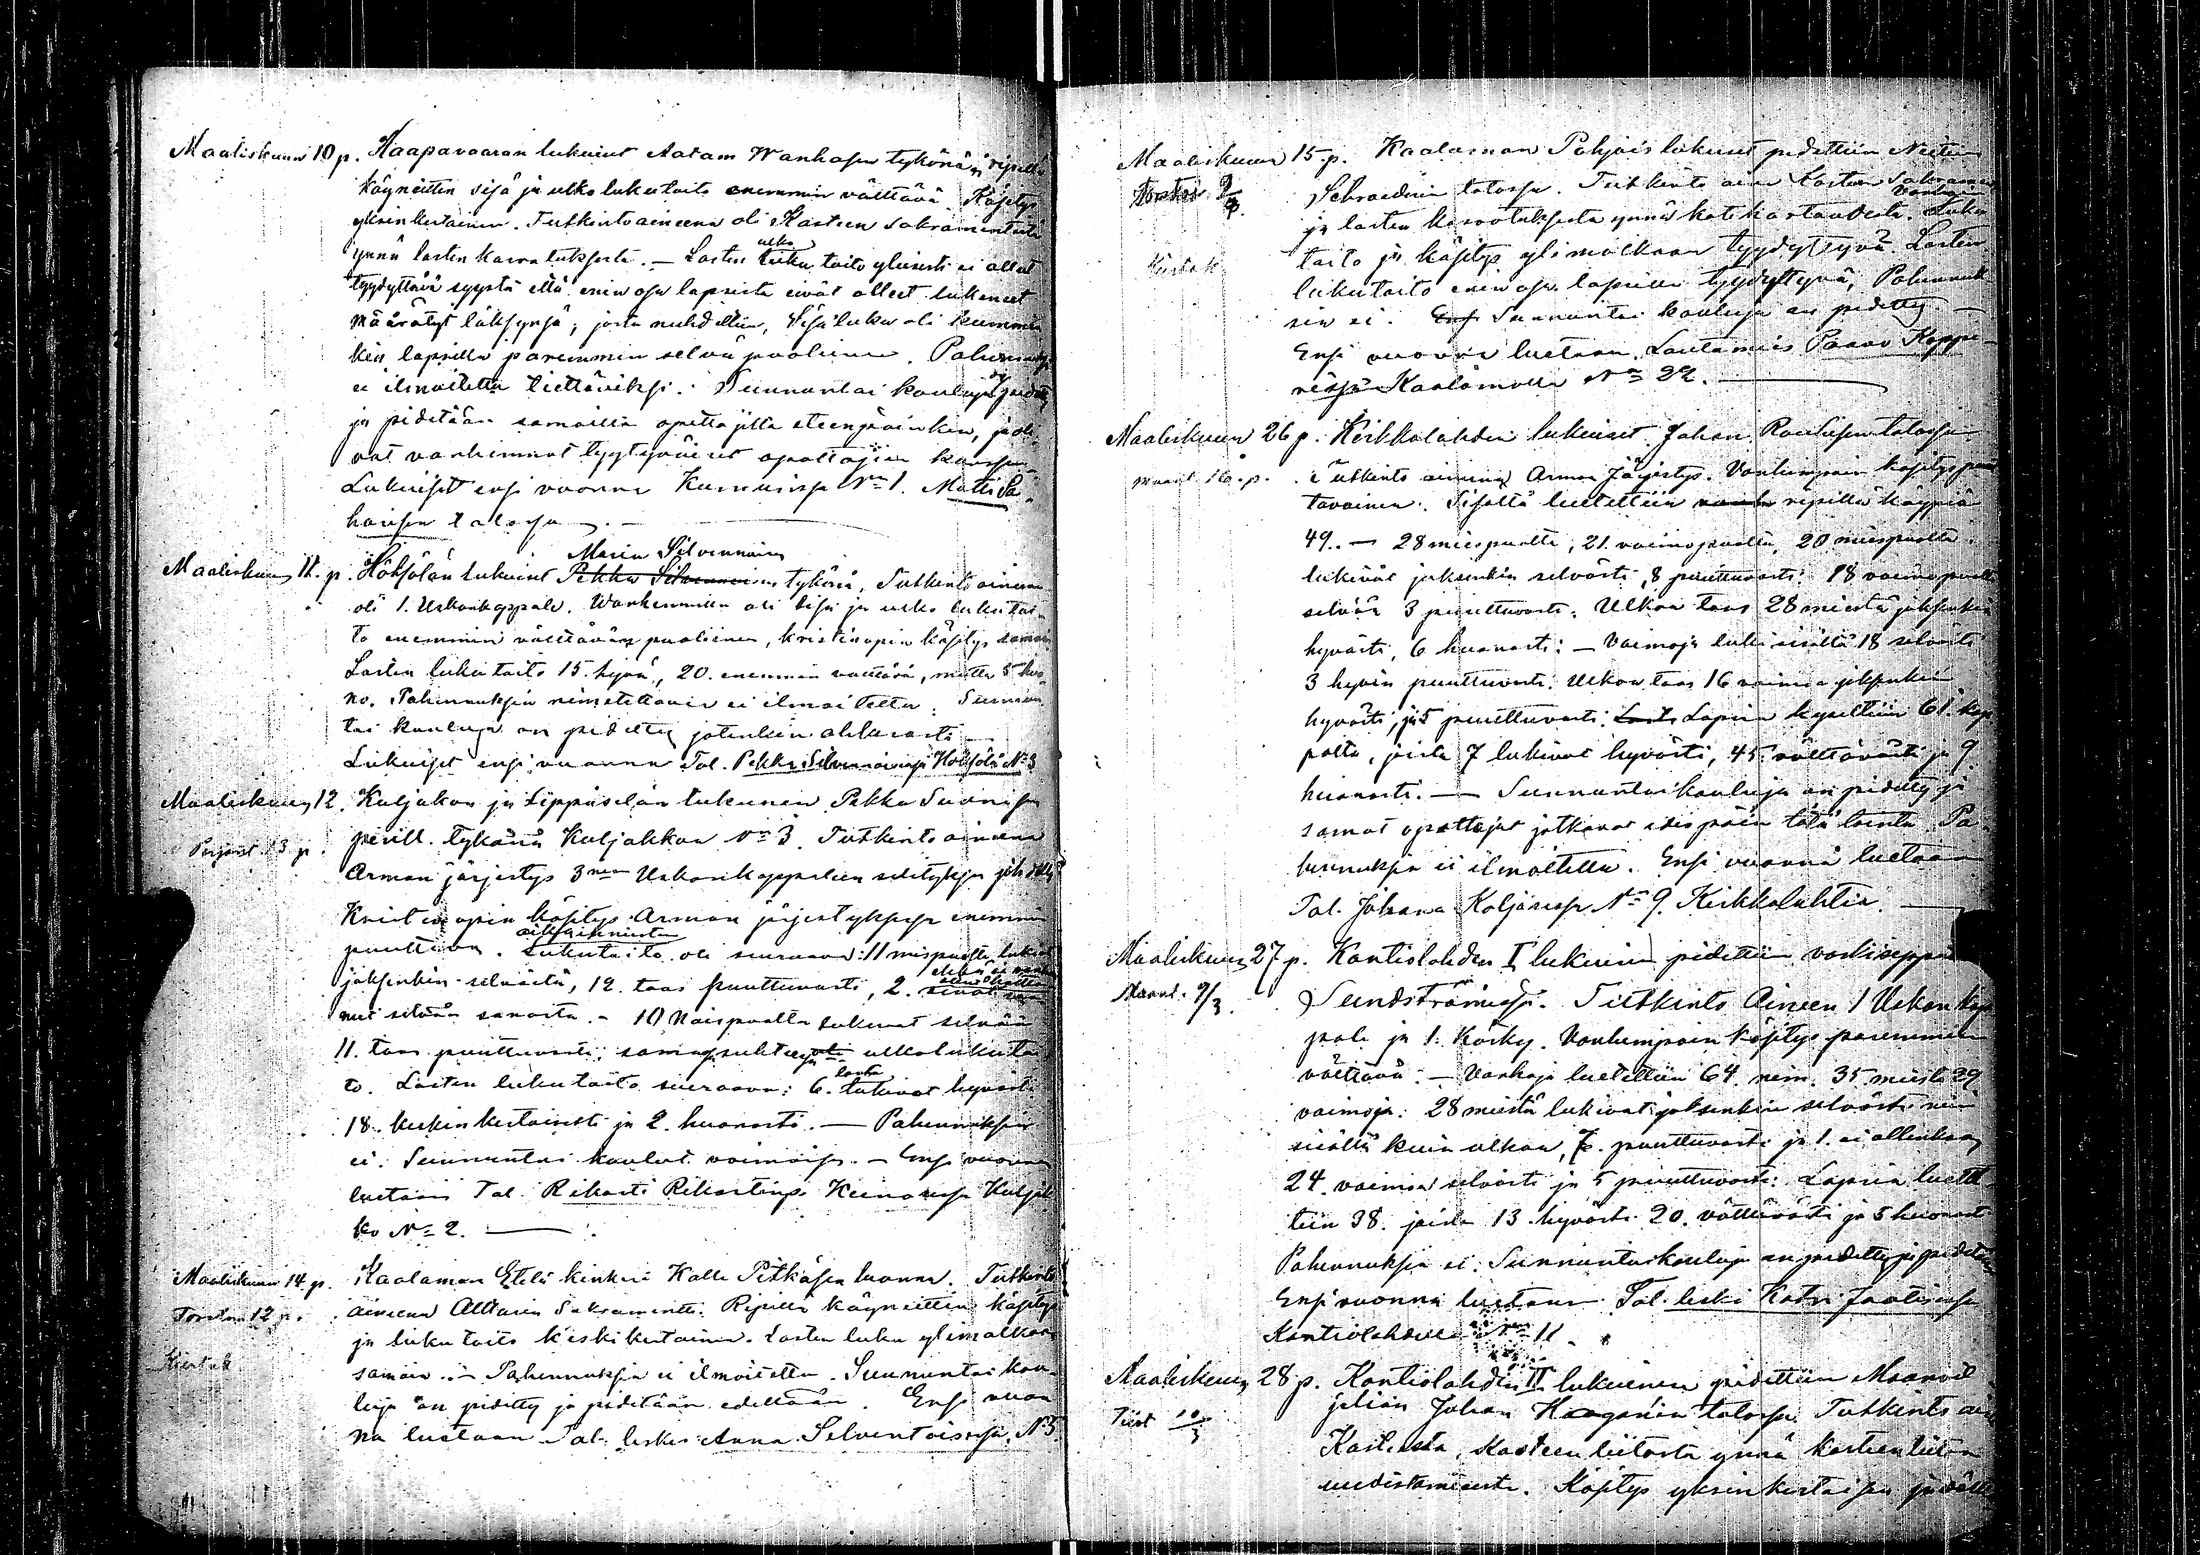 Maaliskuun 10 p. Haapavaaran lukuiset Aatam Wanhasen tykönä; ripillä
käyneitten sisä ja ulko lukutaito enemmin välttävä Käsitys
yksinkertainen. Tutkinto aineena oli Kasteen sakramentista
ynnä lasten kasvatuksesta. — Lasten ulko luku taito yleisesti ei ollut
tyydyttävä syystä että enin osa lapsista eivät olleet lukeneet
määrätyt läksynsä, josta nuhdeltiin, Sisä luku oli kummin
kin lapsilla paremmin selvä puolinen. Pahennuksia
ei ilmoitettu tiettäviksi. Sunnuntai kouluja on pidetty
ja pidetään samoilla opettajilla eteenpäinkin, ja oli
vat vanhimmat tyytyväiset opettajien kanssa.
Lukuiset ensi vuonna Kumurissa No 1. Matti Pa-
hoisen talossa.
Maaliskuun 11. p. Höksölän lukuiset Pekka Silvennoisen Maria Silvennoisen tykönä, Tutkinto aineena
oli 1. Uskonkappale. Wanhemmilla oli sisä ja ulko lukutai-
to enemmin välttävän puolinen, kristinopin käsitys samoin
Lasten lukutaito 15 hyvä, 20. enemmin välttävä, mutta 5 huo
no. Pahennuksia nimitettäviä ei ilmoitettu. Sunnun
tai kouluja on pidetty jotenkin ahkerasti —
Lukuiset ensi vuonna Tal. Pekka Silvennoisessa Höksölä No 3
Maaliskuun 12. Kuljakon ja Leppäselän lukunen Pekka Suonisen
Perjant. 13 p. perill. tykönä Kuljakkoa No 3. Tutkinto aineena
Armon järjestys 3nen Uskonkappaleen selityksen
Kristin opin käsitys Armon järjestyksessä enemmin
puuttuva. Lukutaito oli seuraava: 11 miespuolta lukivat
jokseenkin selvästä, 12. taas puuttuvasti, 2.
nut selvään sanoista. — 10 Naispuolta lukivat selvään
11. taas puuttuvasti; ulkolukutai
to. Lasten lukutaito seuraava: 6. lasta lukivat hyvästi
18. keskinkertaisesti ja 2. huonosti. — Pahennuksia
ei. Sunnuntai koulut voimassa. — Ensi vuonna
luetaan Tal. Rikarti Rikartinp. Keinosessa Kuljak
ko No 2. —
Maaliskuun 14 p. Kaalaman Etelä kinkeri Kalle Pitkäsen luonna. Tutkinto
Torstai 12 p. aineena Alttarin Sakramentti. Ripillä käyneitten käsitys
ja luku taito keskikertainen. Lasten luku ylimalkaan
Kiertok samoin. — Pahennuksia ei ilmoitettu. Sunnuntai kou-
luja on pidetty ja pidetään edelleen. Ensi vuon
na luetaan Tal. leski Anna Silventoisessa, N 5.
Maaliskuun 15 p. Kaalaman Pohjois lukuset pidettiin Neitin
Torstai Schroederin talossa. Tutkinto aine Kasteen Sakramen
ja lasten kasvatuksesta ynnä kotikartanosta. Vanhain Luku
Kiertok taito ja käsitys ylimalkaan tyydyttyvä Lasten
lukutaito enin osa lapsilla tyydyttyvä, Pahennuk
sia ei. Sunnuntai kouluja on pidetty. —
Ensi vuonna luetaan Lautamies Paavo Koppi-
sessa Kaalamolla No 22. —
Maaliskuun 26 p. Kirkkolahden lukuiset Johan Rautisen talossa.
maant. 16. p. Tutkinto aineena Armon Järjestys. Vanhempain käsitys puut
tavainen. Sisältä luetettiin ripillä käypiä
49. — 28 miespuolta, 21. vaimopuolta, 20 miespuolta
lukivat jokseenkin selvästi, 8 puuttuvasti. 18 vaimopuolta
selvään 3 puuttuvasti. Ulkoa taas 28 miestä jokseenkin
hyvästi, 6 huonosti: — Vaimoja luki sisältä 18 selvästi
3 hyvin puuttuvasti. Ulkoa taas 16 vaimoa jokseenkin
hyvästi, ja 5 puuttuvasti. Lapsia kyseltiin 61. kap
paletta, joista 7 lukivat hyvästi, 45 välttävästi ja 9
huonosti. — Sunnuntaikouluja on pidetty ja
samat opettajat jatkavat edespäin tätä tointa. Pa-
hennuksia ei ilmoitettu. Ensi vuonna luetaan
Tal. Johana Koljosessa No 9. Kirkkolahtea. —
Maaliskuun 27 p. Kontiolahden I lukuinen pidettiin vaskiseppä
Maant. 9/3. Sundströmissä. Tutkinto Aineen 1 Uskon kap
pale ja 1. Käsky. Vanhempain käsitys paremmin
välttävä. — Vanhoja luetettiin 64 nim. 35 miestä 29
vaimoja. 28 miestä lukivat jokseenkin selvästi niin
sisältä kuin ulkoa, 7. puuttuvasti ja 1. ei ollenkaan,
24. vaimoa selvästi ja 5 puuttuvasti. Lapsia luetet
tiin 38. joista 13 hyvästi 20. välttävästi ja 5 huonosti
Pahennuksia ei. Sunnuntaikouluja on pidetty ja pidetään
Ensi vuonna luetaan Tal. leski Katri Jaatisessa
Kontiolahdella No 11.
Maaliskuun 28 p. Kontiolahden II lukuinen pidettiin Maanvil
Tiist 10/3 jeliän Johan talossa. Tutkinto ai
Kasteesta, kasteen liitosta ynnä kasteenliiton
uudistamisesta. Käsitys yksinkertaisen